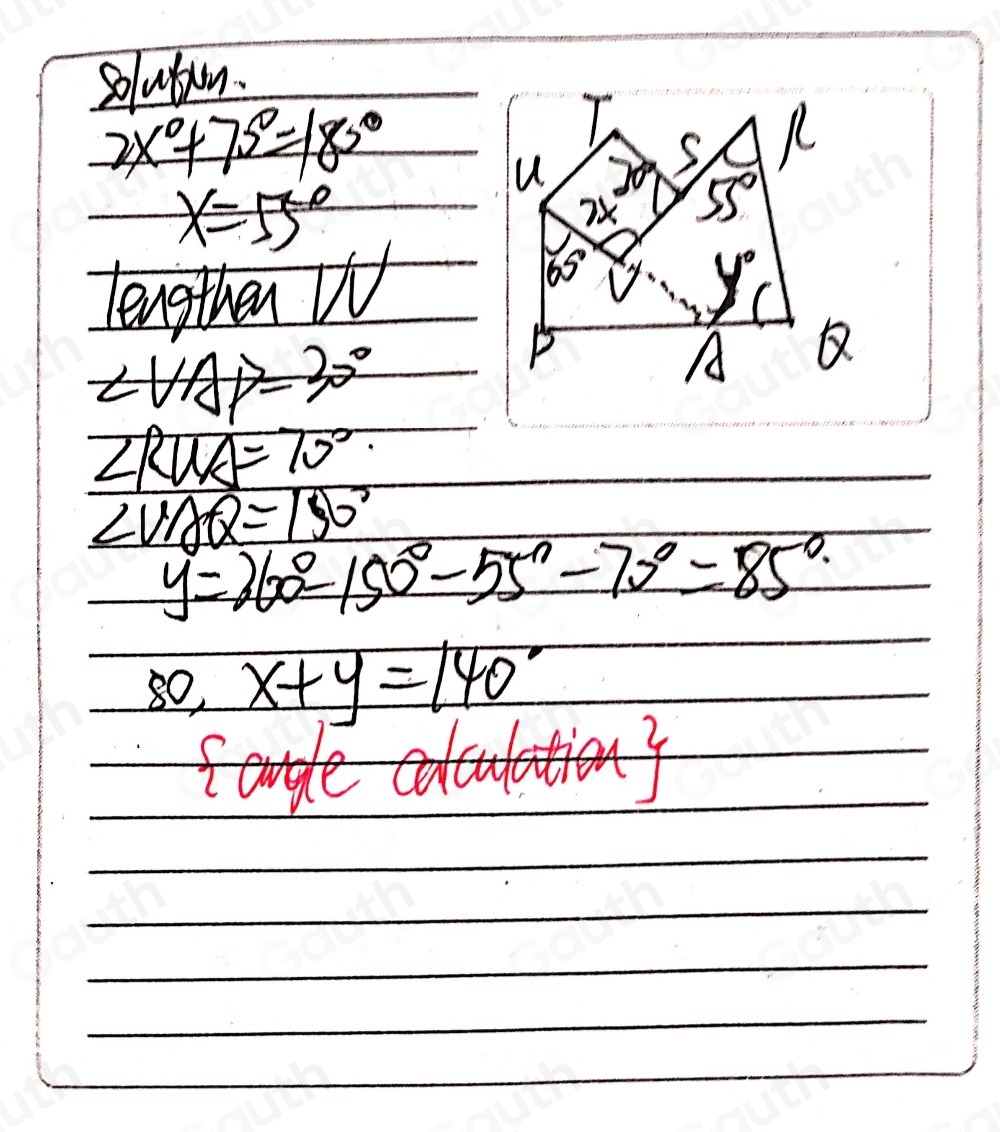 Solution.
2x°+70°=180°
x=55°
lengthen UV
∠VAP=30°
∠RVA=70°.
∠VAQ=150°
y=360°-150°-55°-70°=85°.
so, x+y=140°
{angle calculation}
T
U
S
R
70°
2x
55°
65°
V
y°
P
A
Q
Gauth